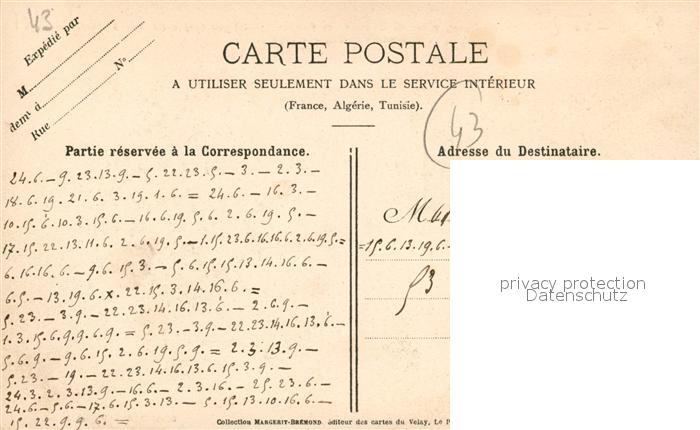 43
Expédié par
M
demt à
Rue
No
CARTE POSTALE
A UTILISER SEULEMENT DANS LE SERVICE INTÉRIEUR
(France, Algérie, Tunisie).
43
Partie réservée à la Correspondance.
24.6.– 9.23.13.9.– 5.22.23.5.– 3.– 2.3.–
18.6.19.21.6.3.19.1.6.= 24.6.– 16.3.–
10.15.6.10.3.15.6.– 16.6.19.5.6.2.6.19.5.–
17.15.22.13.11.6.2.6.19.5.– 1.15.23.6.16.16.6.2.6.19.5.=
6.16.16.6.– 9.6.15.3.– 5.6.15.15.13.14.16.6.–
6.5.– 13.19.6.x.22.15.3.14.16.6.=
5.23.– 3.9.– 22.23.14.16.13.6.– 2.6.9.–
1.3.15.6.9.9.6.9.= 5.23.–3.9.– 22.23.14.16.13.6.–
5.6.9.– 9.6.15.2.6.19.5.9.= 2.3.13.9.–
5.23.– 19.– 22.23.14.16.13.6.15.3.9.–
24.3.2.3.13.9.– 16.6.– 2.3.16.– 25.23.6.–
24.6.– 5.6.– 17.6.15.3.13.– 5.15.13.10.16.6.–
15.22.9.9.6.=
Adresse du Destinataire.
=15.6.13.19.6.–
53
privacy protection
Datenschutz
Collection MARGERIT-BRÉMOND, éditeur des cartes du Velay, Le P